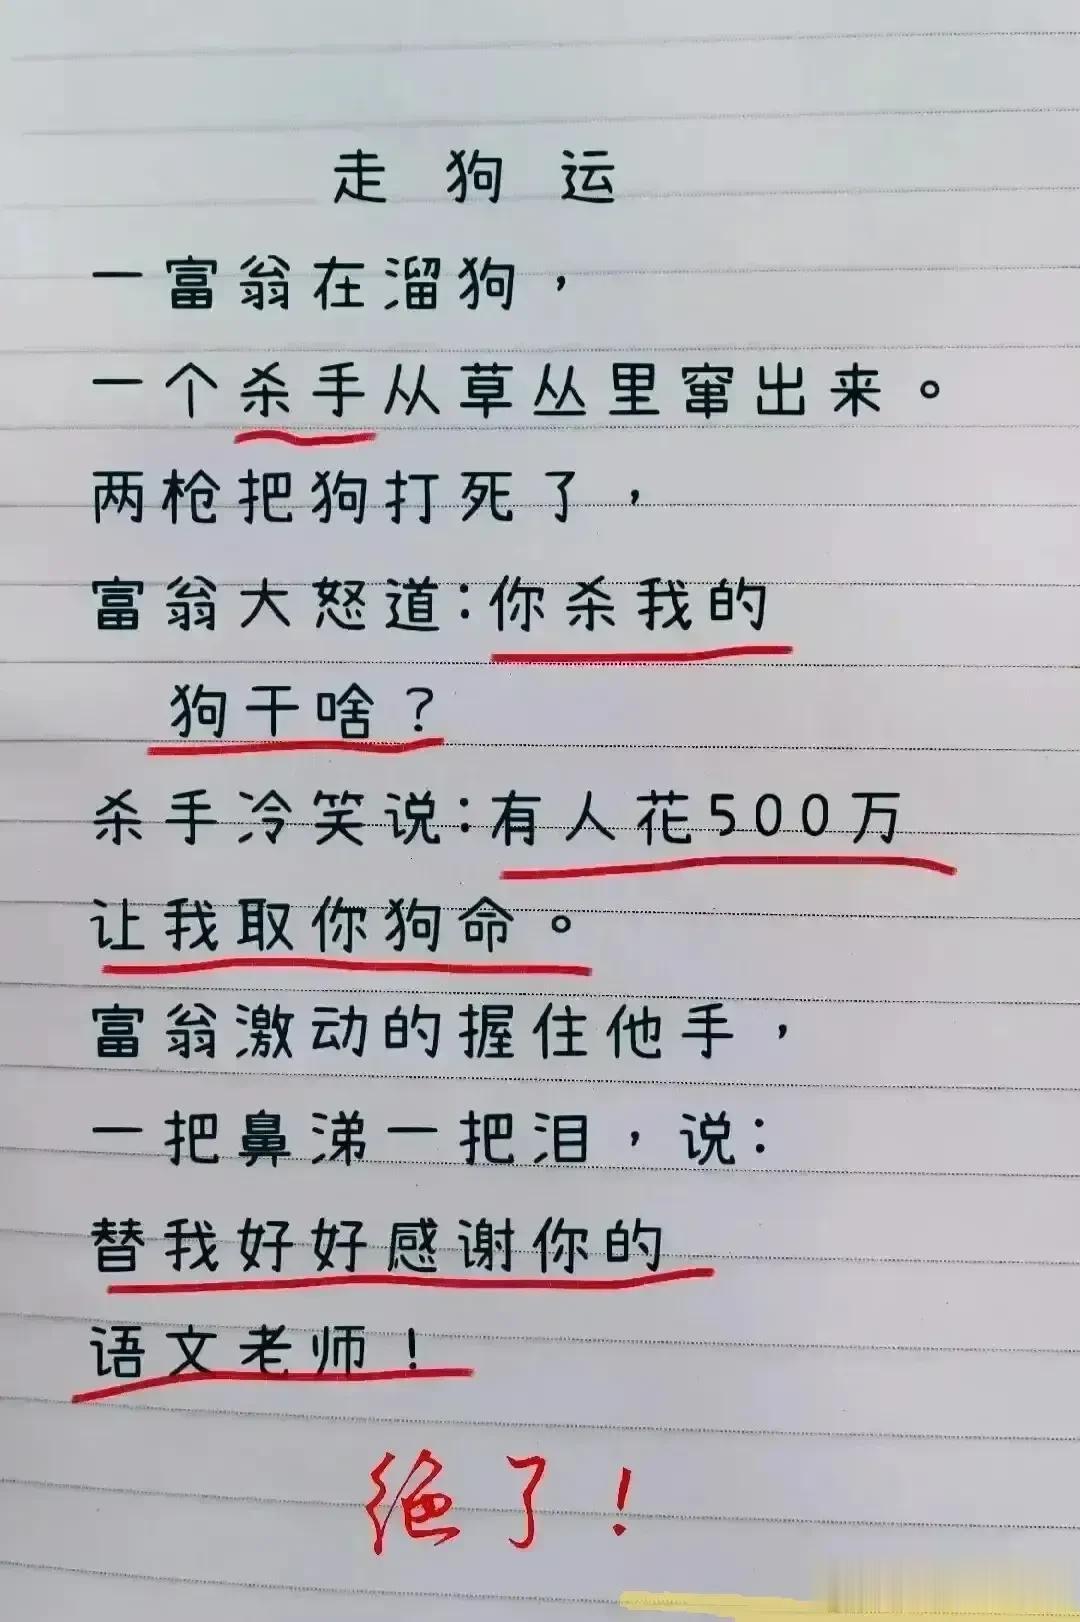 走狗运
一富翁在溜狗，
一个杀手从草丛里窜出来。
两枪把狗打死了，
富翁大怒道:你杀我的
狗干啥？
杀手冷笑说:有人花500万
让我取你狗命。
富翁激动的握住他手，
一把鼻涕一把泪，说:
替我好好感谢你的
语文老师！
绝了！